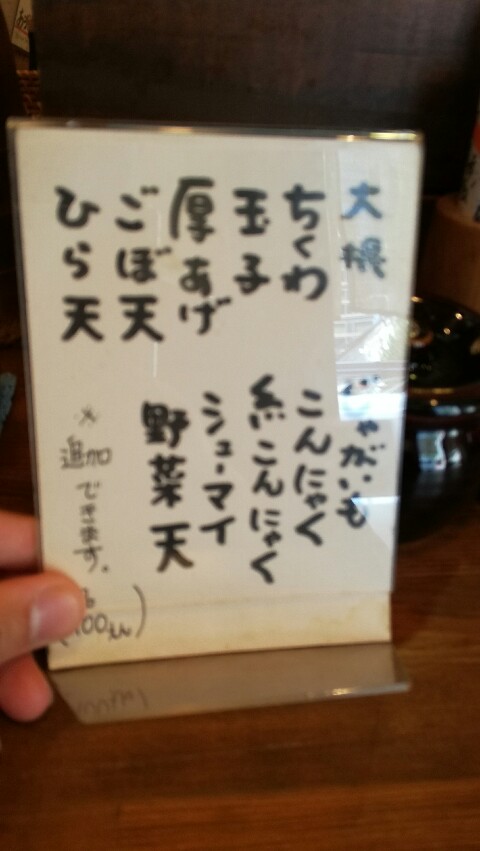 大根
ちくわ
玉子
厚あげ
ごぼ天
ひら天
じゃがいも
こんにゃく
糸こんにゃく
シューマイ
野菜天
※追加できます。
100えん)